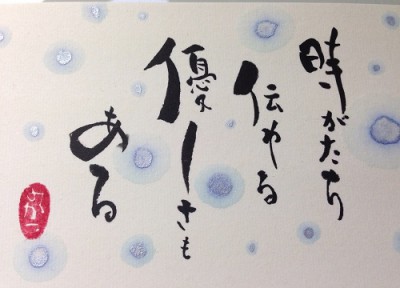 時がたち
伝わる
優しさも
ある